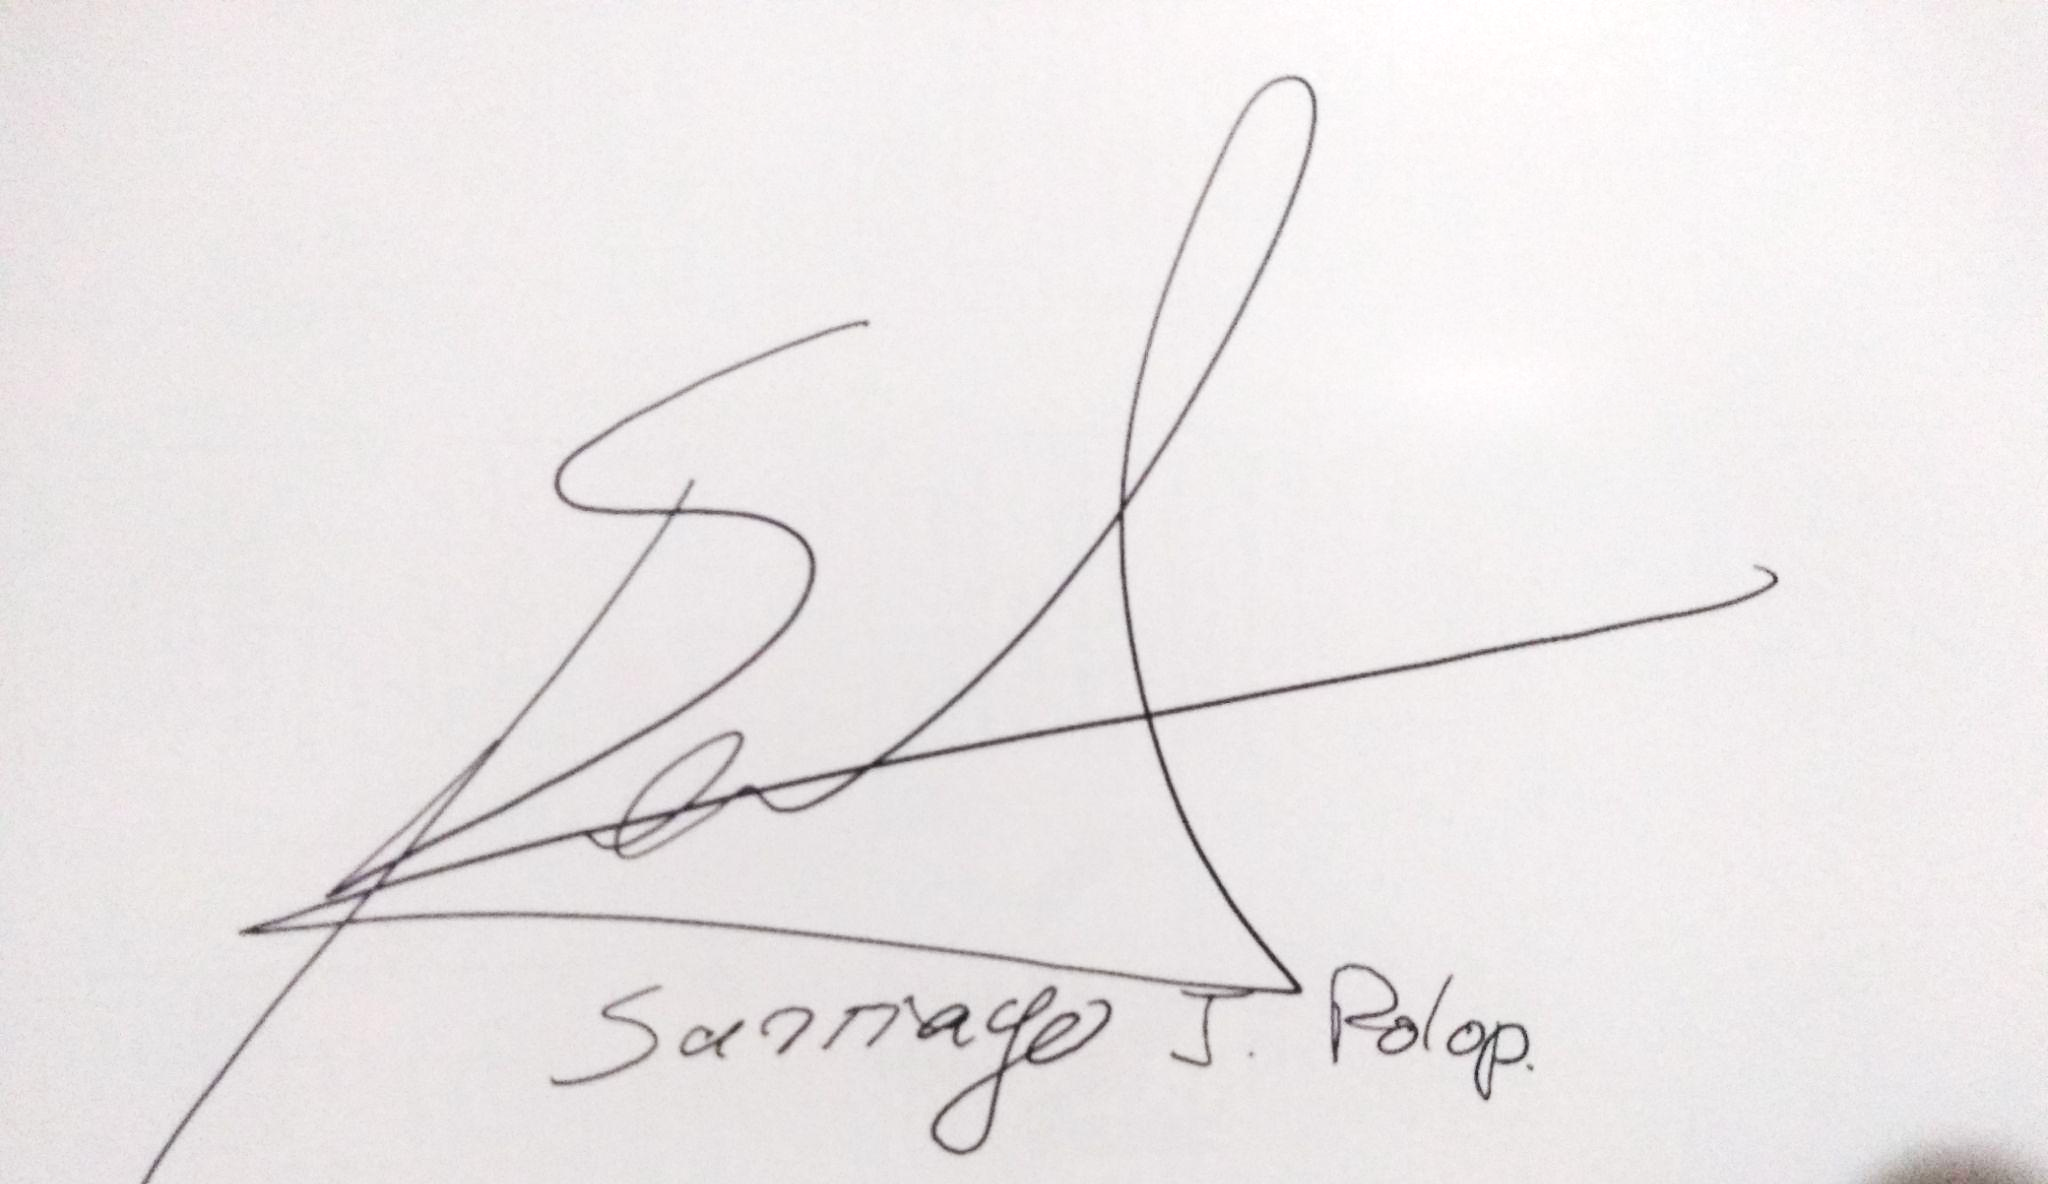 Santiago J. Polop.